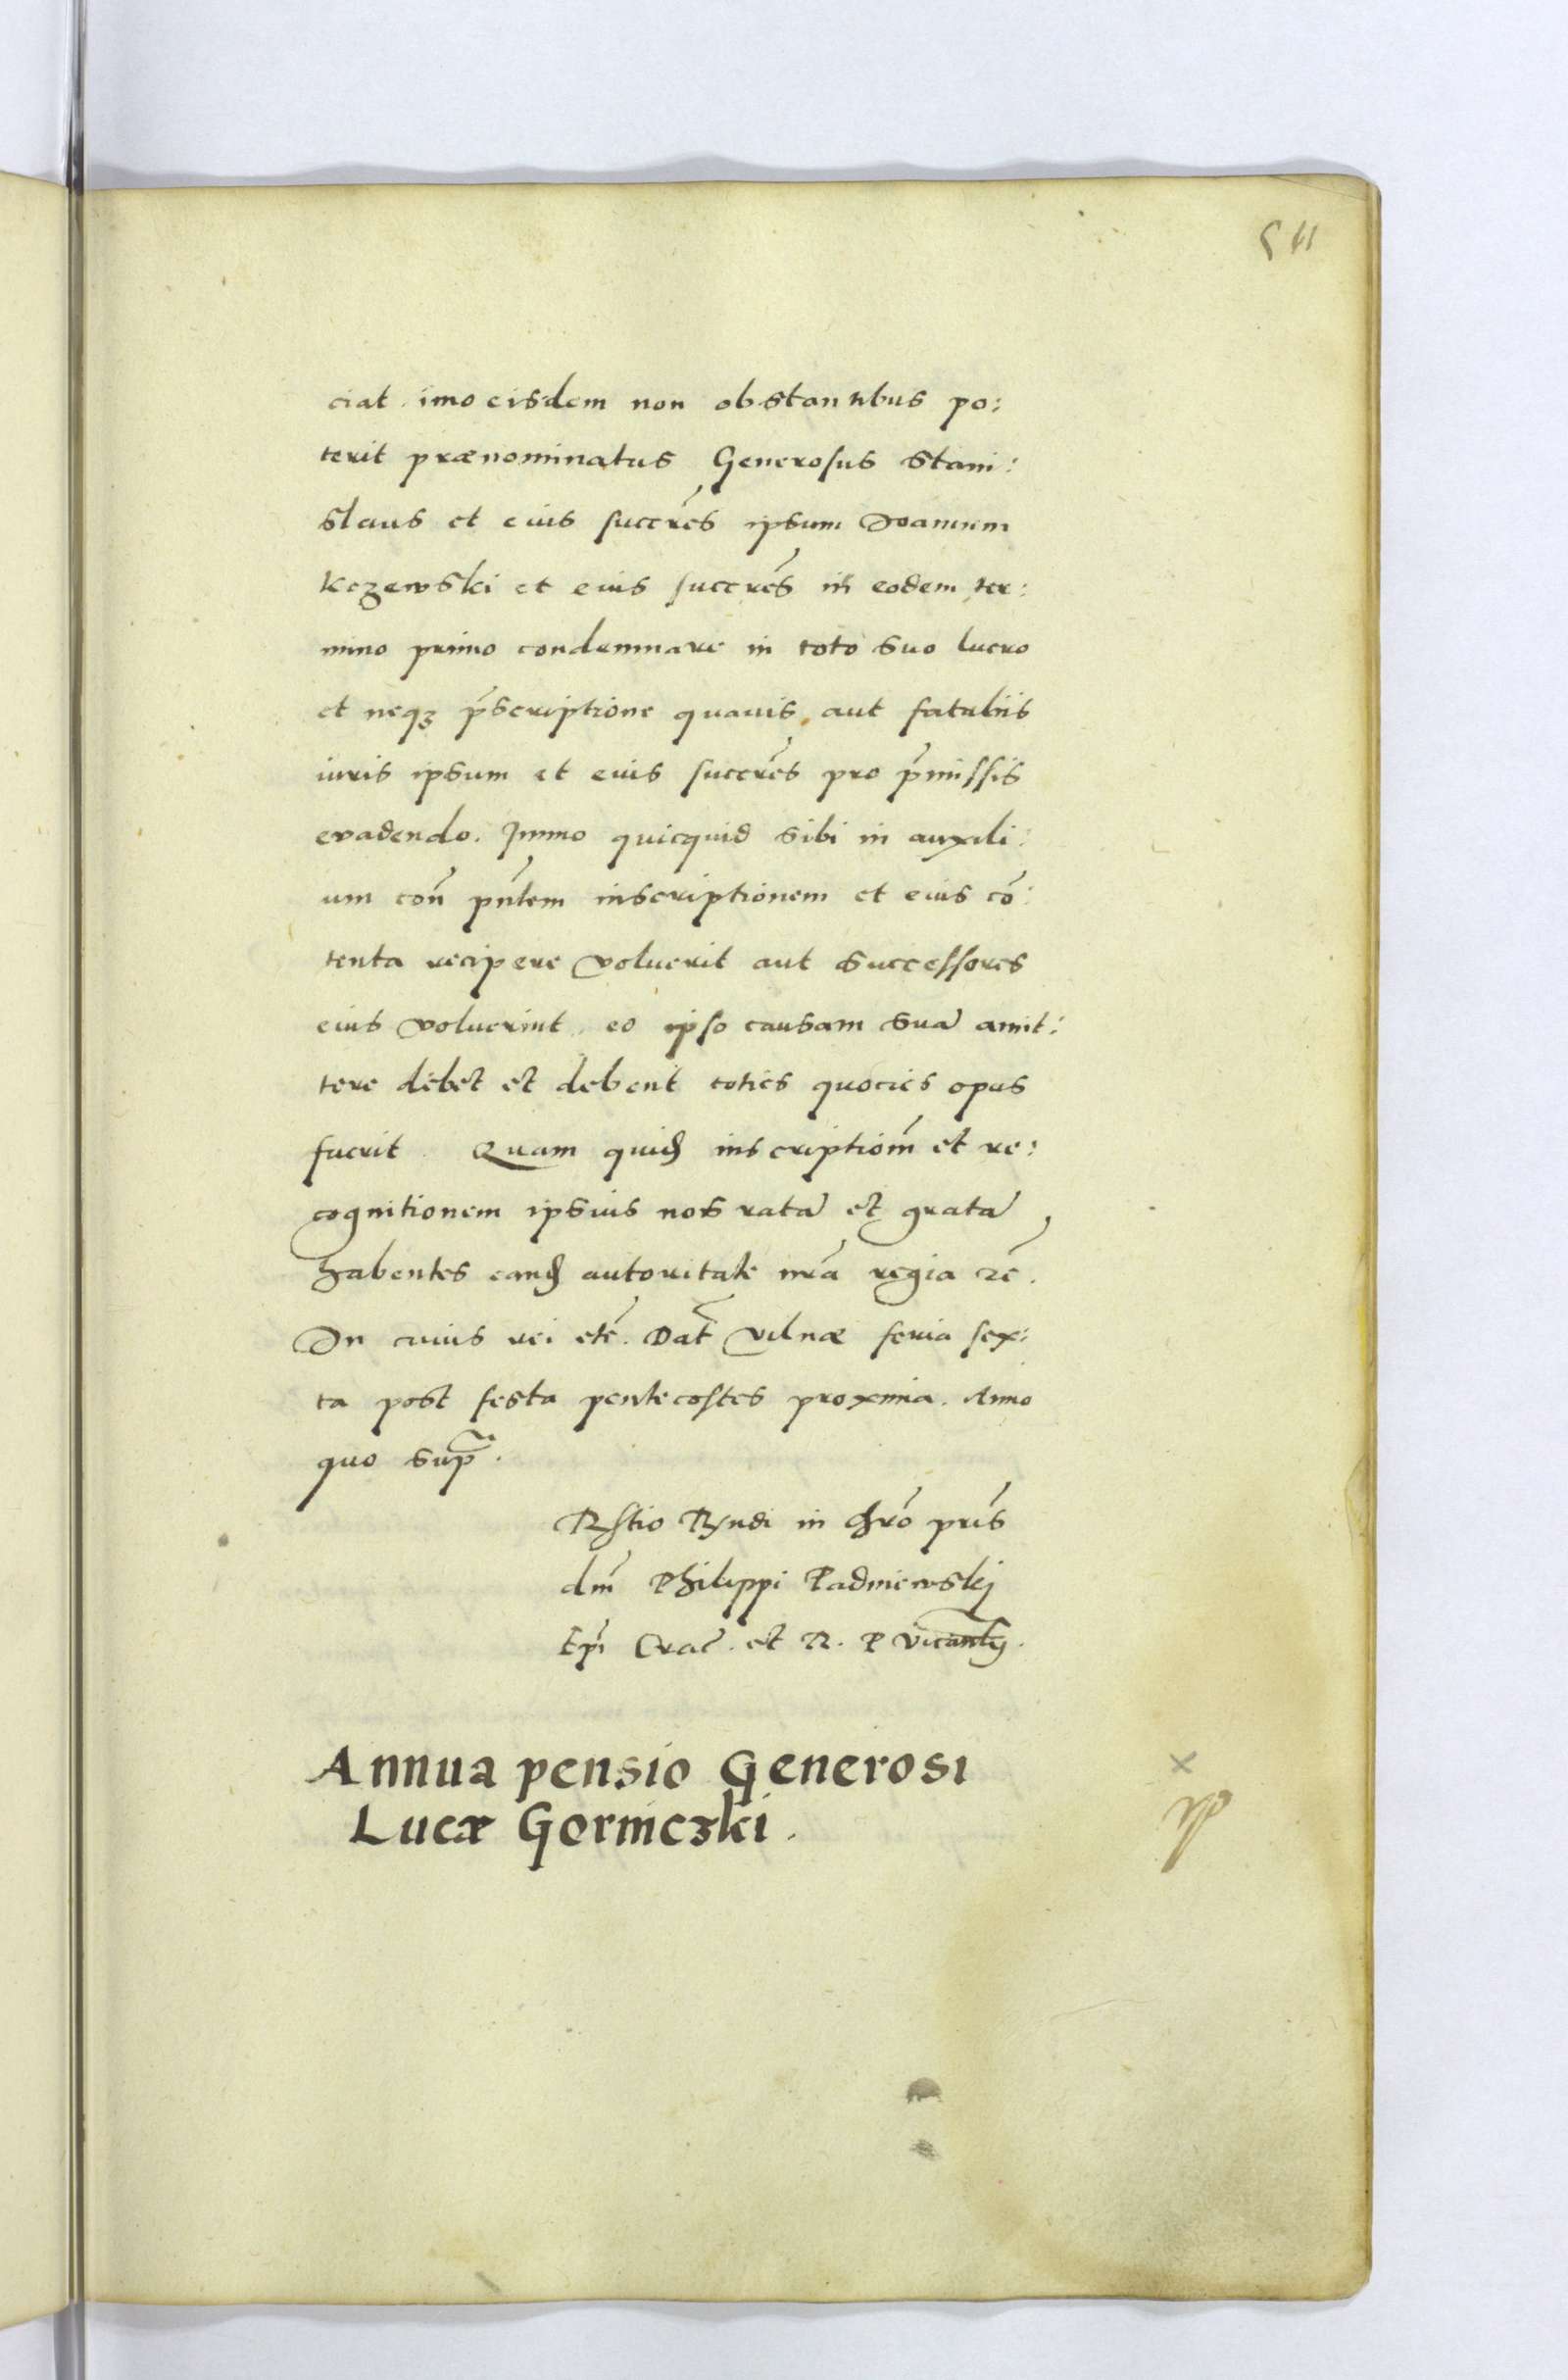 511
ciat. imo eisdem non obstantibus po:
terit prænominatus Generosus Stani:
slaus et eius succr̃es ipsum Joannem
Kczewski et eius succr̃es in eodem ter:
mino primo condemnare in toto suo lucro
et neqꝫ p̃scriptione quauis aut fatalijs
iuris ipsum et eius succr̃es pro p̃missis
euadendo. Immo quicquid sibi in auxili:
um coñ pñtem inscriptionem et eius cõ:
tenta recipere voluerit aut successores
eius voluerint, eo ipso causam suã amit:
tere debet et debent toties quocies opus
fuerit. Quam quid inscriptiom̃ et re:
cognitionem ipsius nos ratã et gratã
habentes eand autoritate nr̃a regia rẽ.
In cuius rei etc̃. Dat̃ Vilnæ feria sex:
ta post festa pentecostes proxima. Anno
quo sup̃.
Rs̃tio Rṽndi in Chrõ pr̃is
dñi Philippi Padniewskj
Ep̃i Crac̃. et R. P Vicancly.
Annua pensio Generosi
Lucæ Gorniczki.
x